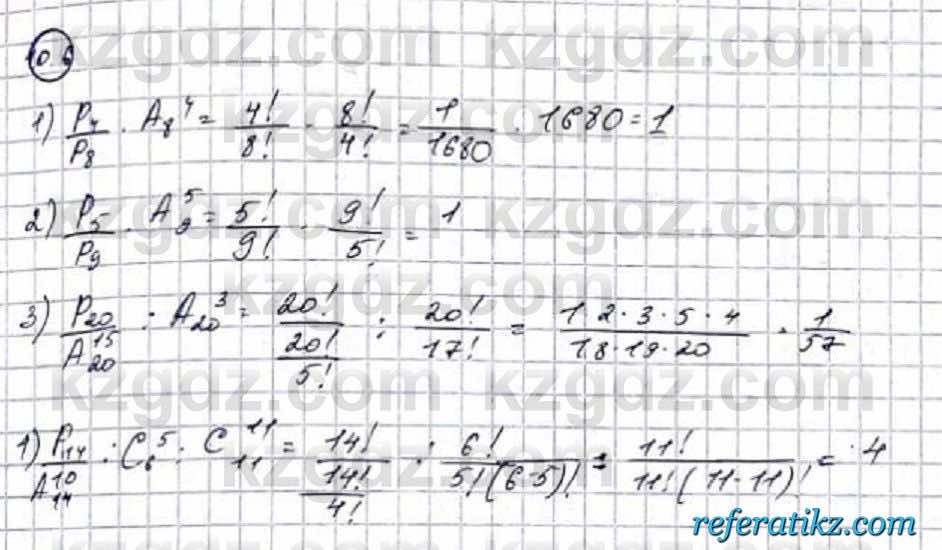 10.6
1) P₄/P₈ · A₈⁴ = 4!/8! · 8!/4! = 1/1680 · 1680 = 1
2) P₅/P₉ · A₉⁵ = 5!/9! · 9!/5! = 1
3) P₂₀/A₂₀¹⁵ : A₂₀³ = 20!/(20!/5!) : 20!/17! = 1 2 · 3 · 5 · 4/18 · 19 · 20 · 1/57
1) P₁₄/A₁₄¹⁰ : C₆⁵ : C₁₁¹¹ = 14!/(14!/4!) : 6!/5!(6-5)! = 11!/11!(11-11)! = 4
kzgdz.com
referatikz.com